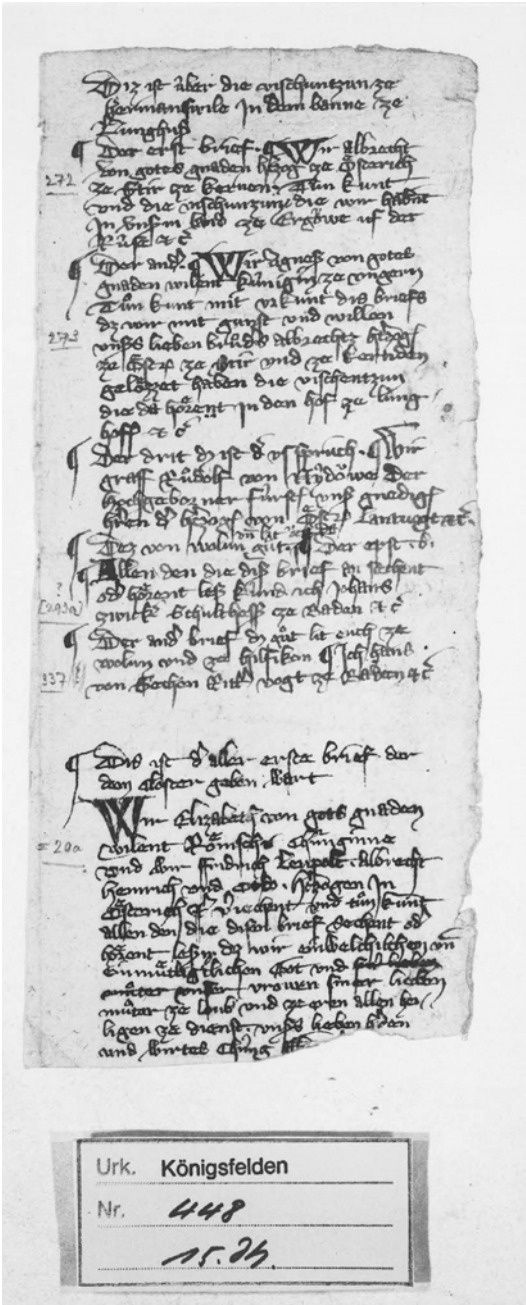 Diz ist über die vischentzun ze
Hermanswile In dem banne ze
Lunghuſ
Der erst brief · Wir albrecht
272
von gotes gnaden htzog ze Österich
ze Stir ze kernen Tun kunt
vmb die vischentzun die wir habent
In vnserm land ze Ergöwe uf der
Rüse etc
Der and · Wir Agnes von gotes
gnaden wilent künigin ze vngern
Tůn kunt mit vrkunt dis briefs
273
dz wir mit gunst vnd willen
vnſs lieben brůdˢ albrechtz htzog
ze Öster ze Stir vnd ze kernden
gelözzet haben die vischentzun
die da hörent In den hof ze Lung
hoff etc
Der drit dz ist d vsspruch · Wir
graff Růdolf von Nydöwe Der
hochgeborner fürst vnſs gnedig
hren d htzog von Östr Lantvogt etc
Dez von wolun gůt Der erst b
?
[293a]
Allen den die diſ brief an sechent
od hörent leſ kund ich Johans
zwick Schultheſſ ze Baden etc
Der and brief dz gůt lit ouch ze
wolun vnd ze hilfikon Ich hans
337
von Sechon Ritt vogt ze Baden etc
Dis ist d aller erste brief der
dem closter geben Wart
Wir Elizabeth von gots gnaden
= 20a
wilent Römsche Chünginne
vnd Wir fridrich Leupolt · albrecht
heinrich vnd Otto · htzogen In
Österich etc veriechent vnd tůn kunt
allen den die disen brief sechent od
hörent lesen dz wir einwelchlichem vn
einmütklichen Got vnd
vrowen siner lieben
můter ze lob vnd ze eren allen hei
ligen ze dienst · vnſs lieben hren
vnd wirtes Chüng
Urk. Königsfelden
Nr. 448
15. Jh.